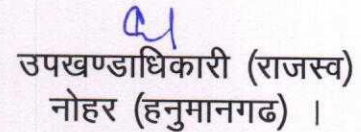 उपखण्डाधिकारी (राजस्व)
नोहर (हनुमानगढ) ।